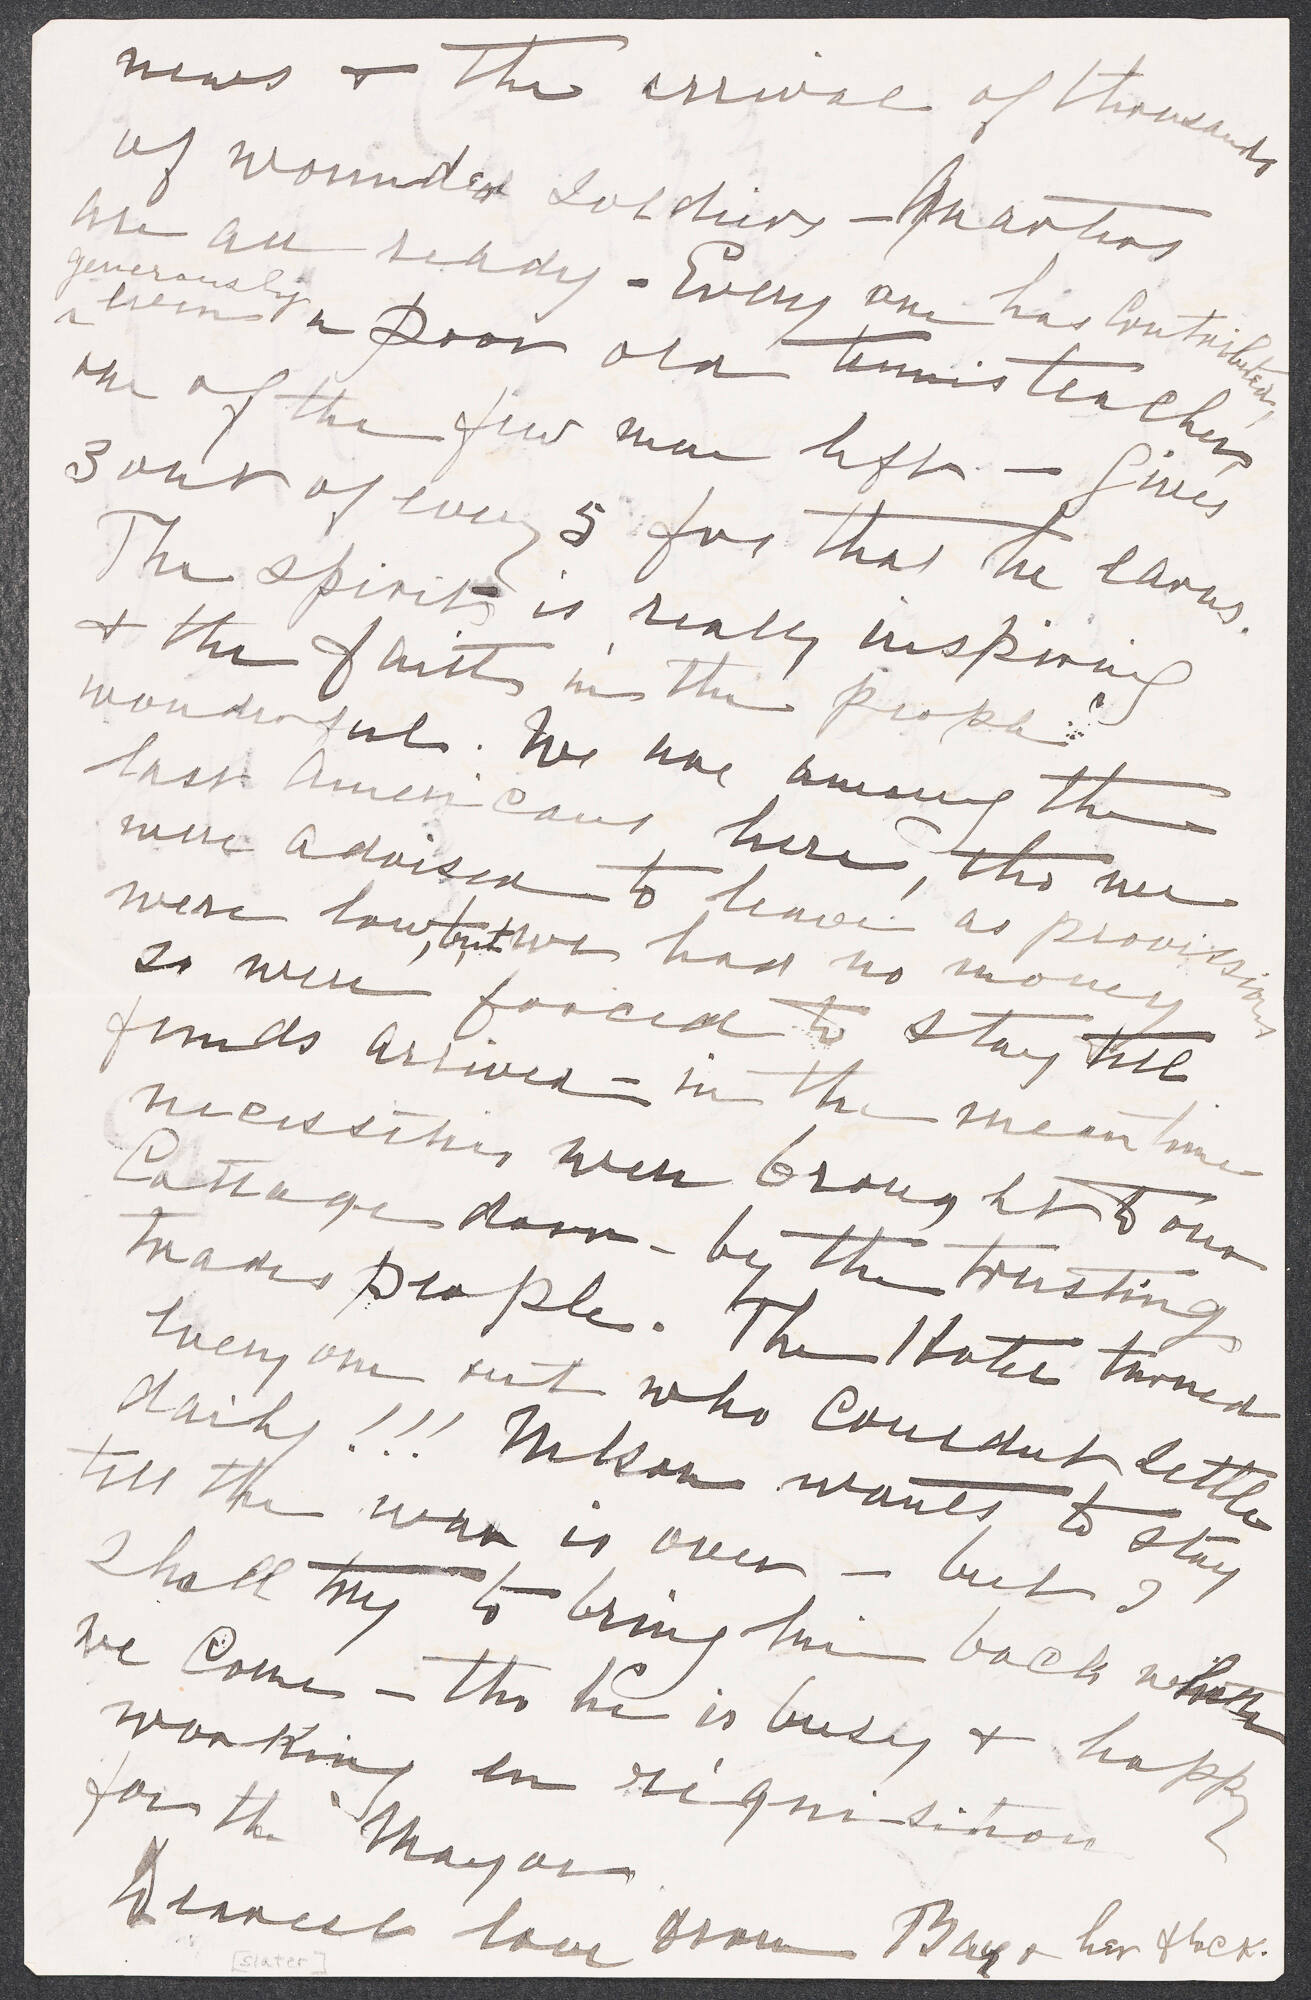 news + the arrival of thousands
of wounded soldiers – Quarters
are all ready – Every one has contributed,
generously
a poor old tennis teacher,
one of the few men left – gives
3 out of every 5 frs that he earns.
The spirit is really inspiring
+ the faith in the people
wonderful. We are among the
last Americans here, tho we
were advised to leave as provisions
were low, but we had no money
so were forced to stay till
funds arrived – in the meantime
necessities were brought to our
Cottage door – by the trusting
trades people. The Hotel turned
every one out who couldnt settle
daily!!! Nelson wants to stay
till the war is over – but I
shall try to bring him back when
we come – tho he is busy + happy
working en réquisition
for the Mayor
Dearest love from Bay + her flock.
[slater]